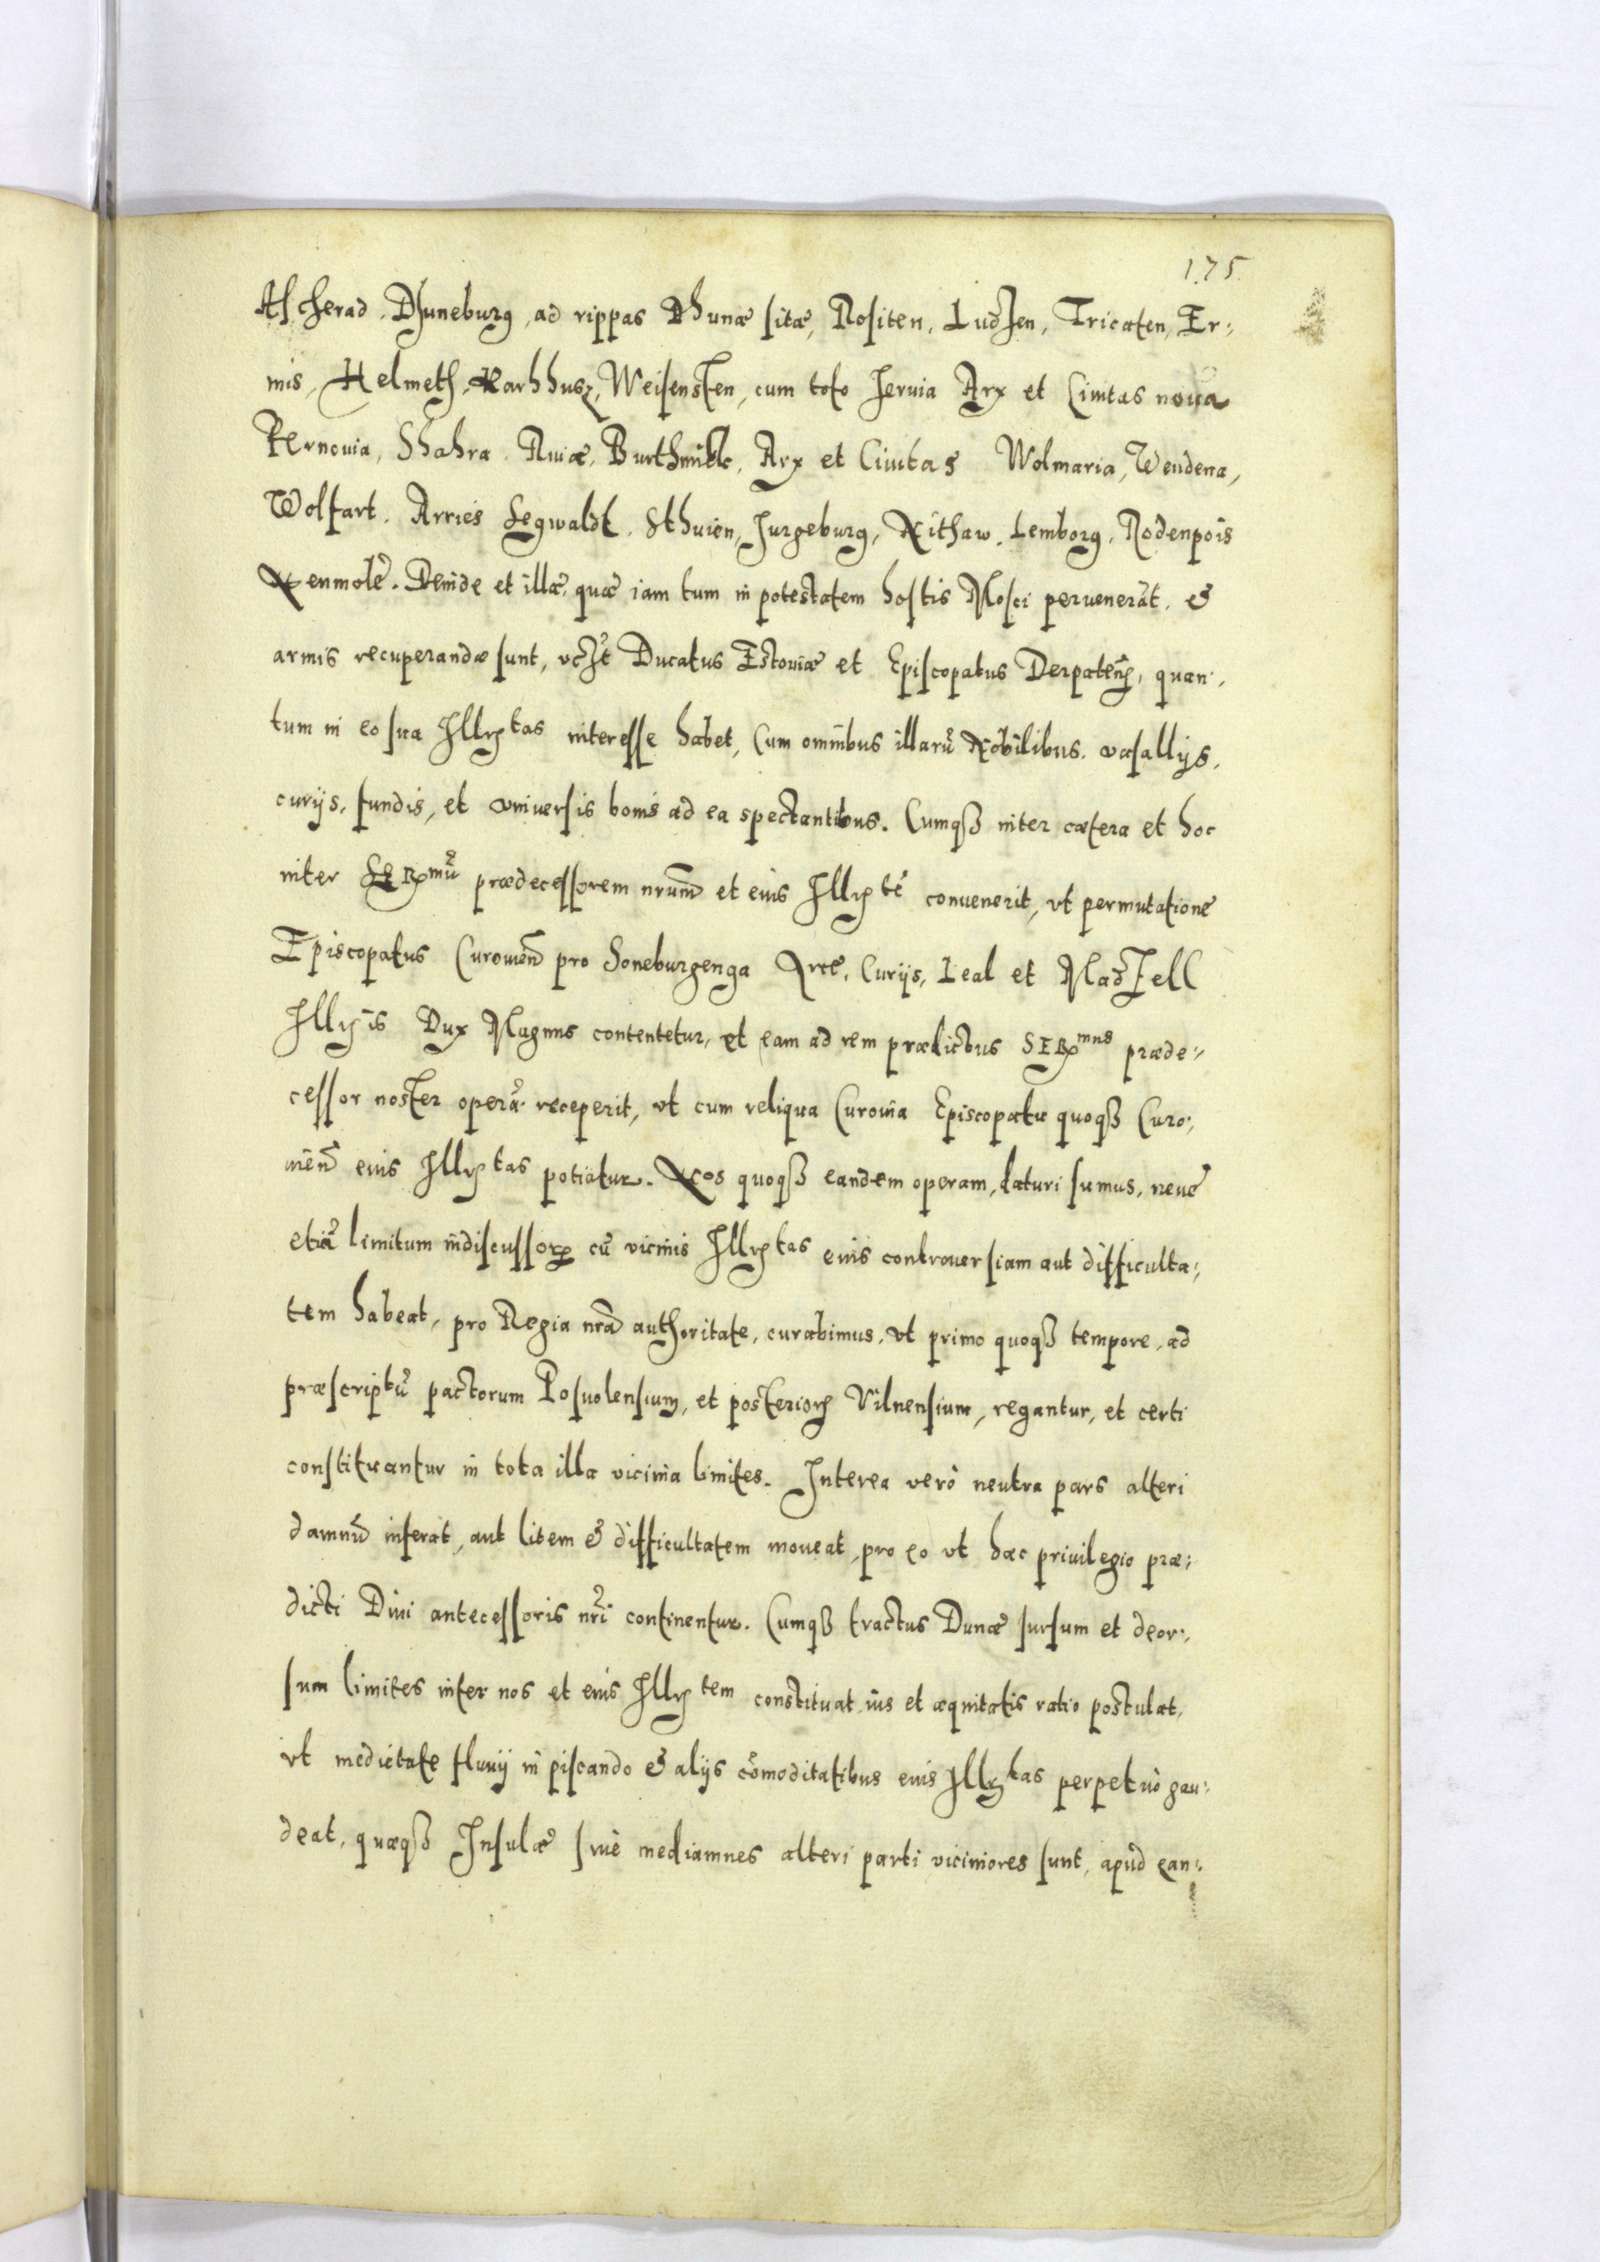 175
Ascherad, Dhuneburg, ad rippas Dhunæ sitæ, Rositen, Ludsen, Tricaten, Er:
mis, Helmeth, Karhhusz, Weisensten, cum toto Jeruia Arx et Ciuitas noua
Pernouia, Shahra, Ruiæ, Burthnikk, Arx et Ciuitas Wolmaria, Wendena,
Wolfart, Arries Segwaldt, Sthuien, Jurgeburg, Nithaw, Lemborg, Rodenpois
Nenmolē. Deinde et illæ, quæ iam tum in potestatem hostis Mosci peruenerāt, &
armis recuperandæ sunt, vczt Ducatus Estoniæ et Episcopatus Derpateñ, quan:
tum in eo sua Illrtas interesse habet, Cum omnibus illarū Nobilibus, vasallijs,
curijs, fundis, et vniuersis bonis ad ea spectantibus. Cumqȝ inter cætera et hoc
inter SERmū prædecessorem nrum̄ et eius Illrtē conuenerit, vt permutationē
Episcopatus Curonien̄ pro Soneburgenga Arce, Curijs, Leal et Madzell
Illris Dux Magnus contentetur, et eam ad rem prædictus SERmus præde:
cessor noster operā receperit, vt cum reliqua Curonia Episcopatu quoqȝ Curo:
nien̄ eius Illrtas potiatur. Nos quoqȝ eandem operam, daturi sumus, neue
etiā limitum indiscussorꝝ cū vicinis Illrtas eius controuersiam aut difficulta:
tem habeat, pro Regia nrā authoritate, curabimus, vt primo quoqȝ tempore, ad
præscriptū pactorum Posuolensium, et posteriorꝝ Vilnensium, regantur, et certi
constituantur in tota illa vicinia limites. Interea verò neutra pars alteri
damnū inferat, aut litem & difficultatem moueat, pro eo vt hac priuilegio præ:
dicti Diui antecessoris nri̅ continentur. Cumqȝ tractus Dunæ sursum et deor:
sum limites inter nos et eius Illrtem constituat, ius et æquitatis ratio postulat,
vt medietate fluuij in piscando & alijs cōmoditatibus eius Illrtas perpetuò gau:
deat, quæqȝ Insulæ siuè mediamnes alteri parti viciniores sunt, apud ean: